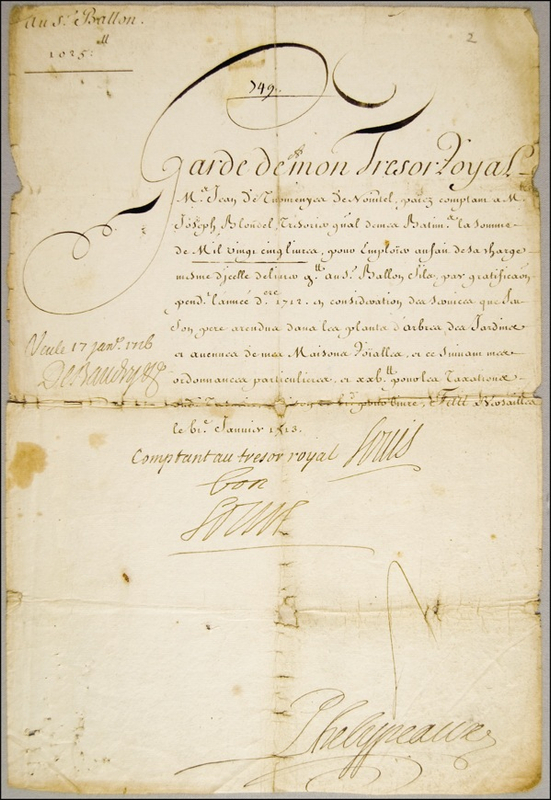 au Sr. Ballon.
2
1025 ll
749.
Garde de mon Tresor Royal
Mre. Jean de Turmenyes de Nointel, paiez comptant a Me
Joseph Blondel, Tresorier gnal de mes Batimts. la somme
de Mil vingt cinq livres, pour Employer au fait de sa charge
mesme d'icelle delivrer au Sr. Ballon fils, par gratificaon
pendt. l'année dre. 1712. en consideration des services que feu
son pere a rendus dans les plants d'arbres des Jardins
et avenues de mes Maisons Royalles, et ce suivant mes
ordonnances particulieres, et xxv ll pour les Taxations
Fait Versailles
le Janvier 1713.
Veu le 17 janr. 1716
De Baudry
Comptant au tresor royal
Louis
bon
Louis
Phelypeaux